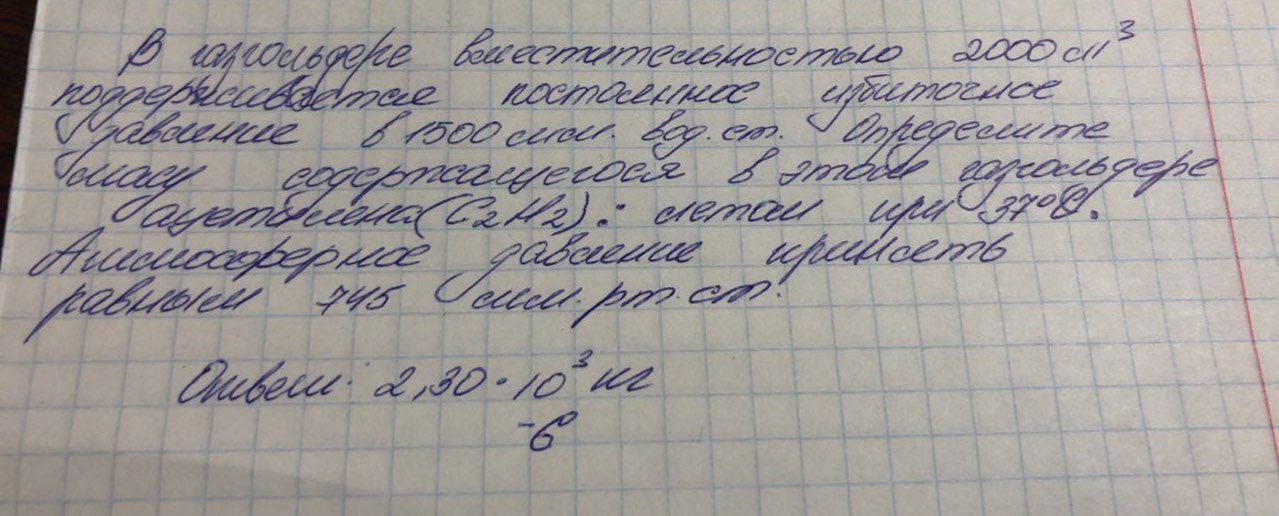 В газгольдере вместительностью 2000 м³
поддерживается постоянное избыточное
давление в 1500 мм. вод. ст. Определите
масу содержащегося в этом газгольдере
ацетилена (C₂H₂): летом при 37°C.
Атмосферное давление принять
равным 745 мм. рт. ст.
Ответ: 2,30 · 10³ кг
-6